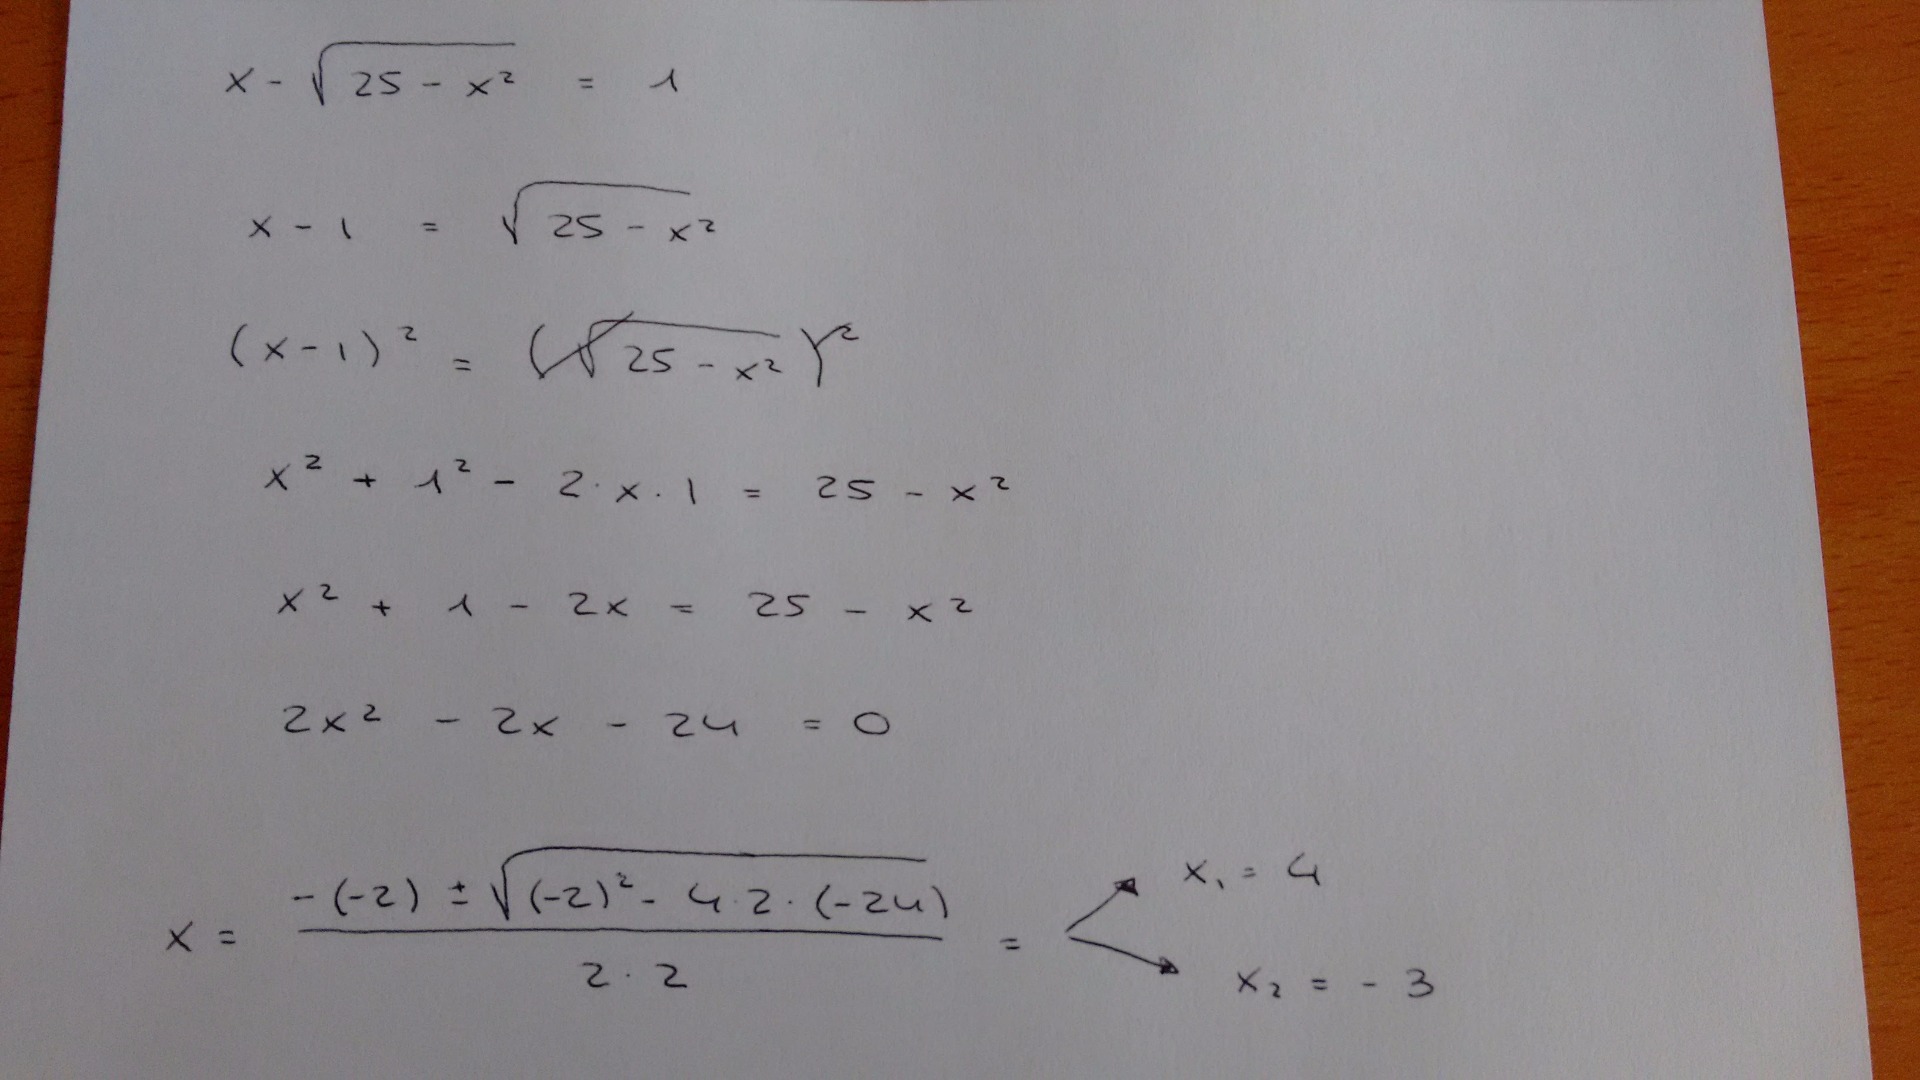 x - √(25 - x²) = 1
x - 1 = √(25 - x²)
(x - 1)² = (√(25 - x²))²
x² + 1² - 2 · x · 1 = 25 - x²
x² + 1 - 2x = 25 - x²
2x² - 2x - 24 = 0
x = (-(-2) ± √((-2)² - 4 · 2 · (-24))) / (2 · 2) =
x₁ = 4
x₂ = -3